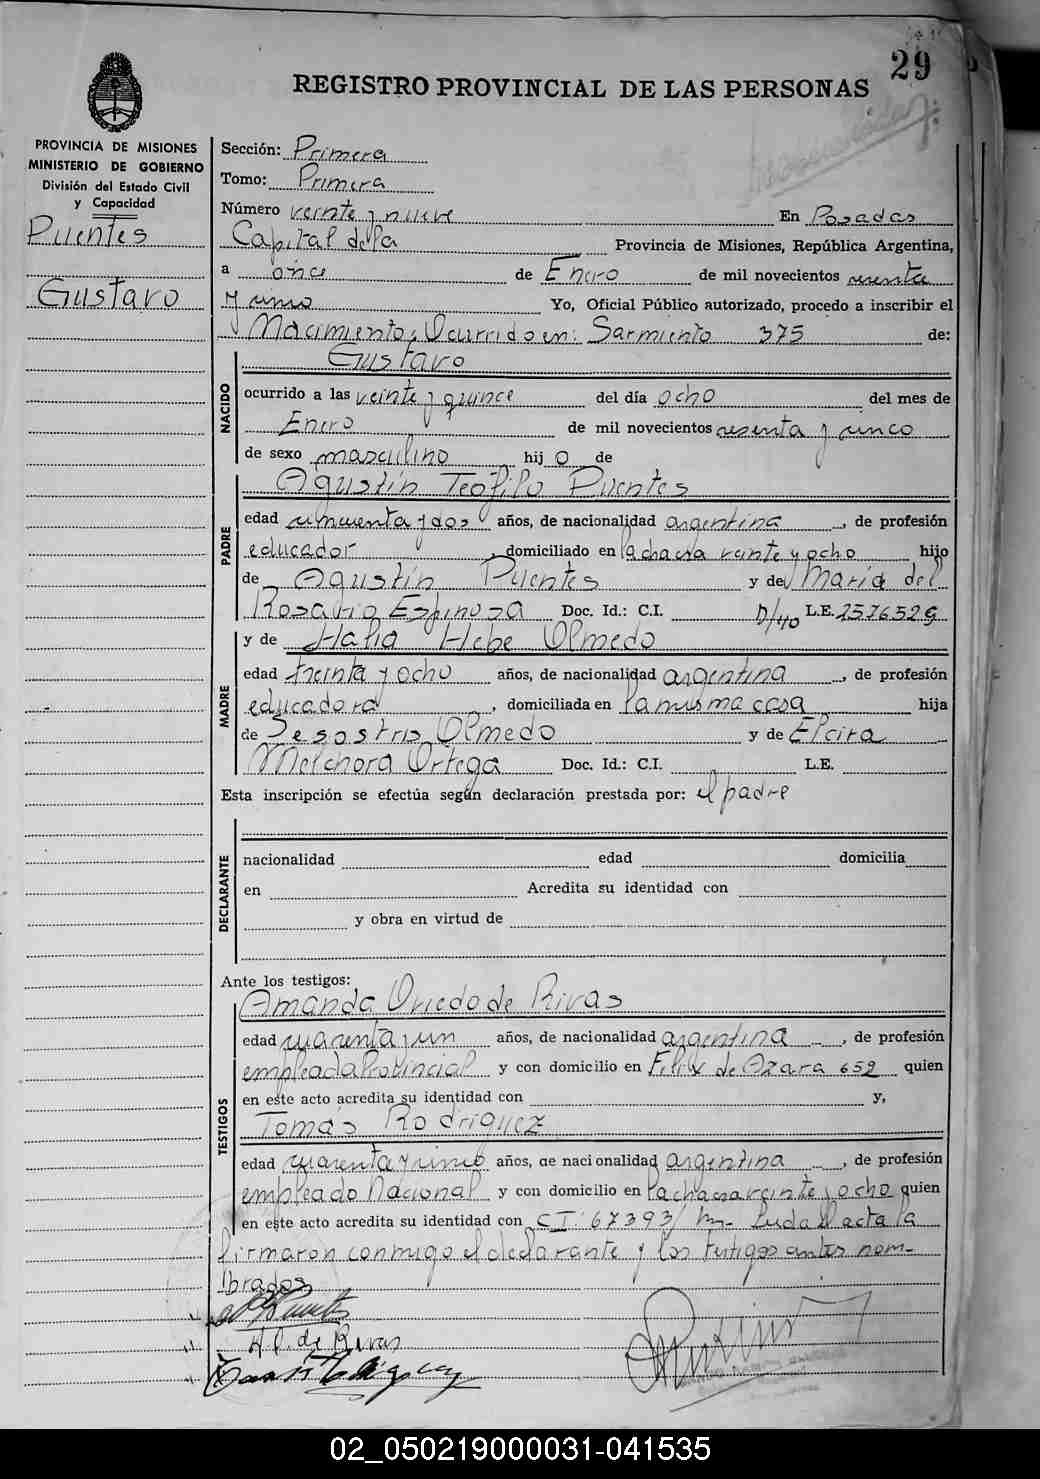 29
REGISTRO PROVINCIAL DE LAS PERSONAS
PROVINCIA DE MISIONES
MINISTERIO DE GOBIERNO
División del Estado Civil
y Capacidad
Puentes
Gustavo
Sección: Primera
Tomo: Primera
Número veinte y nueve En Posadas
Capital de la Provincia de Misiones, República Argentina,
a once de Enero de mil novecientos sesenta
y cinco Yo, Oficial Público autorizado, procedo a inscribir el
Nacimiento, Ocurrido en: Sarmiento 375 de:
Gustavo
NACIDO
ocurrido a las veinte y quince del día ocho del mes de
Enero de mil novecientos sesenta y cinco
de sexo masculino hij o de
Agustín Teófilo Puentes
PADRE
edad cincuenta y dos años, de nacionalidad argentina, de profesión
educador, domiciliado en la chacra veinte y ocho hijo
de Agustín Puentes y de María del
Rosario Espinosa Doc. Id.: C.I. D/40 L.E. 2576529
y de Hebe Olmedo
MADRE
edad treinta y ocho años, de nacionalidad argentina, de profesión
educadora, domiciliada en la misma casa hija
de Sesostris Olmedo y de Elcira
Melchora Ortega Doc. Id.: C.I. L.E.
Esta inscripción se efectúa según declaración prestada por: el padre
DECLARANTE
nacionalidad edad domicilia
en Acredita su identidad con
y obra en virtud de
Ante los testigos:
Amanda Oviedo de Rivas
TESTIGOS
edad cuarenta y un años, de nacionalidad argentina, de profesión
empleada Provincial y con domicilio en Félix de Azara 652 quien
en este acto acredita su identidad con y,
Tomás Rodriguez
edad cuarenta y cinco años, de nacionalidad argentina, de profesión
empleado Nacional y con domicilio en la chacra veinte y ocho quien
en este acto acredita su identidad con CI: 67393/ Leida el acta la
firmaron conmigo el declarante y los testigos antes nom-
brados
A.O. de Rivas
02_050219000031-041535